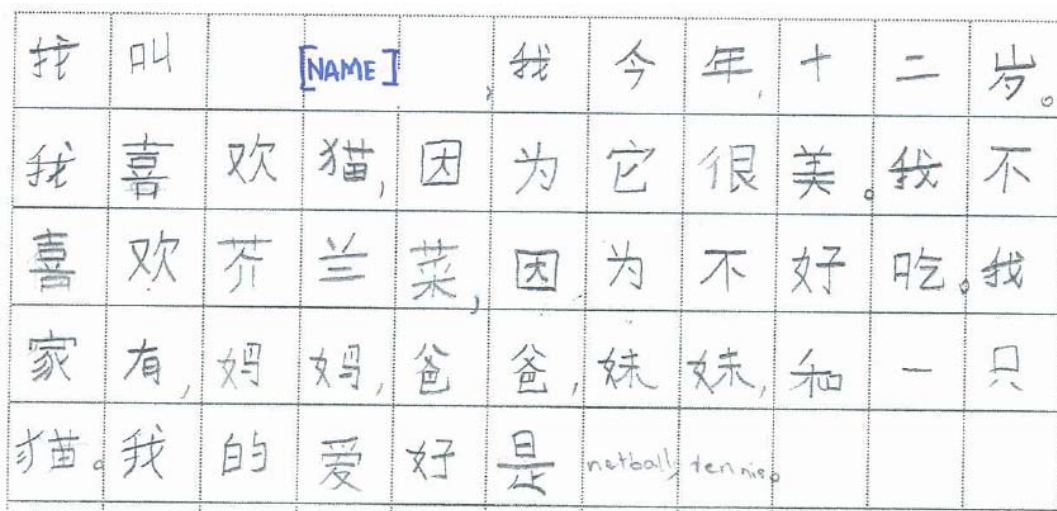 我叫[NAME],我今年,十二岁。
我喜欢猫,因为它很美。我不
喜欢芥兰菜,因为不好吃。我
家有,妈妈,爸爸,妹妹,和一只
猫。我的爱好是netball,tennis。